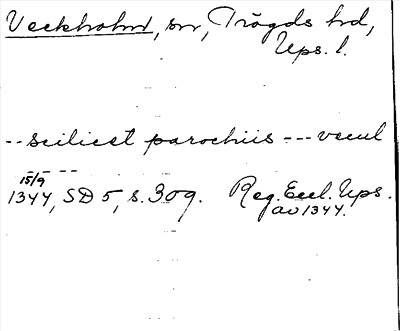 Veckholm, sn, Trögds hd,
Ups. l.
-- scilicet parochiis --- vecul
---
15/9
1344, SD 5, s. 309. Reg. Eccl. Ups.
av 1344.